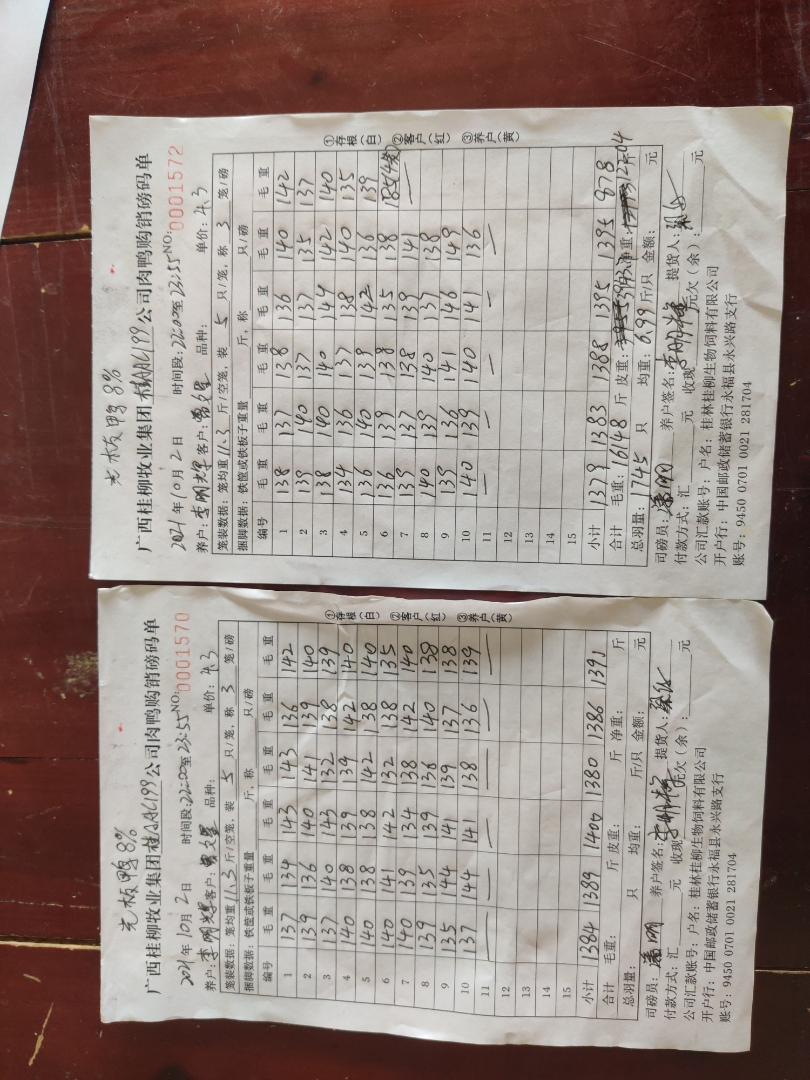 光板鸭 8%
广西桂柳牧业集团桂AAC199公司肉鸭购销磅码单
2021年10月2日 时间段:22:00至23:55 NO:0001570
养户:李明辉 客户: 品种: 单价:4.3
笼装数据:笼均重11.3斤/空笼,装5只/笼,称3笼/磅
捆脚数据:铁筐或铁板子重量 斤,称 只/磅
编号 毛重 毛重 毛重 毛重 毛重 毛重
1 137 134 143 143 136 142
2 139 136 140 141 139 140
3 137 140 143 132 138 139
4 140 138 139 139 142 140
5 140 138 138 142 138 140
6 140 141 142 132 138 135
7 140 139 134 138 142 140
8 139 135 139 136 140 138
9 135 144 141 139 137 138
10 137 144 141 138 136 139
11 — — — — — —
12
13
14
15
小计 1384 1389 1400 1380 1386 1391
合计 毛重: 斤 皮重: 斤 净重: 斤
总羽量: 只 均重: 斤/只 金额: 元
司磅员:潘明 养户签名:李明辉 提货人:
付款方式:汇 元 收现 元欠(余): 元
公司汇款账号:户名:桂林桂柳生物饲料有限公司
开户行:中国邮政储蓄银行永福县永兴路支行
账号:9450 0701 0021 281704
①存根(白) ②客户(红) ③养户(黄)
光板鸭 8%
广西桂柳牧业集团桂AAC199公司肉鸭购销磅码单
2021年10月2日 时间段:22:00至23:55 NO:0001572
养户:李明辉 客户: 品种: 单价:4.3
笼装数据:笼均重11.3斤/空笼,装5只/笼,称3笼/磅
捆脚数据:铁筐或铁板子重量 斤,称 只/磅
编号 毛重 毛重 毛重 毛重 毛重 毛重
1 138 137 138 136 140 142
2 139 140 137 137 135 137
3 138 140 140 144 142 140
4 134 136 137 138 140 135
5 136 140 138 142 136 139
6 136 139 138 135 138 185
7 139 137 138 139 141 —
8 140 139 140 137 138
9 139 136 141 146 149
10 140 139 140 141 136
11 — — — — —
12
13
14
15
小计 1379 1383 1388 1395 1395 878
合计 毛重:16148斤 皮重: 净重:12204斤
总羽量:1745只 均重:6.99斤/只 金额: 元
司磅员:潘明 养户签名:李明辉 提货人:
付款方式:汇 元 收现 元欠(余): 元
公司汇款账号:户名:桂林桂柳生物饲料有限公司
开户行:中国邮政储蓄银行永福县永兴路支行
账号:9450 0701 0021 281704
①存根(白) ②客户(红) ③养户(黄)